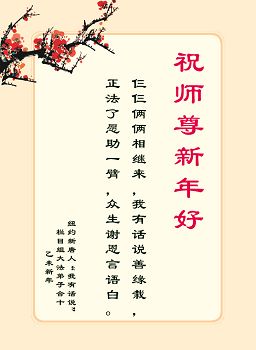 祝师尊新年好
仨仨俩俩相继来，我有话说善缘栽，
正法了恩助一臂，众生谢恩言语白。
纽约新唐人“我有话说”
栏目组大法弟子合十
乙未新年